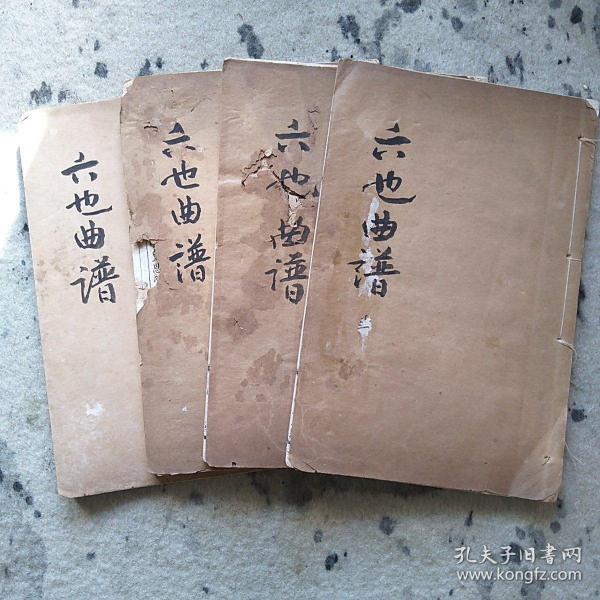 六也曲谱
六也曲谱
六也曲谱
六也曲谱
孔夫子旧書网
www.kongfz.com